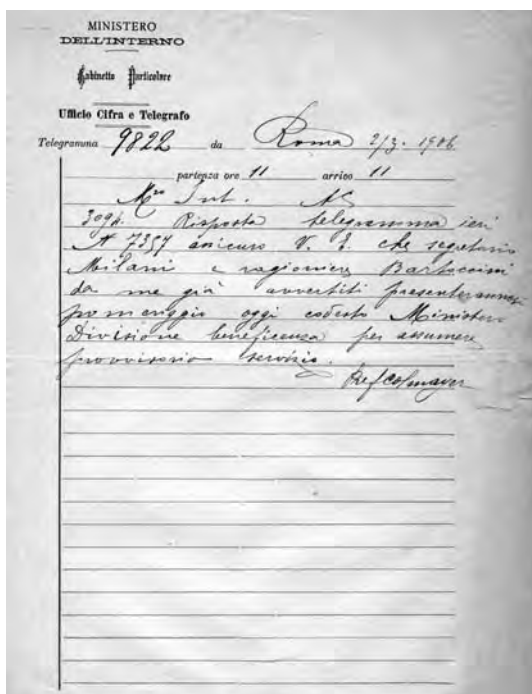 MINISTERO
DELL'INTERNO
Gabinetto Particolare
Ufficio Cifra e Telegrafo
Telegramma 9822 da Roma 2/3. 1906
partenza ore 11 arrivo 11
Mro Int.
3096. Risposta telegramma ieri
N 7357 assicuro V. E. che segretario
Milani e ragioniere Bartoccini
da me già avvertiti presenteranno
pomeriggio oggi codesto Ministero
Divisione beneficenza per assumere
provvisorio servizio.
Pref Colmayer